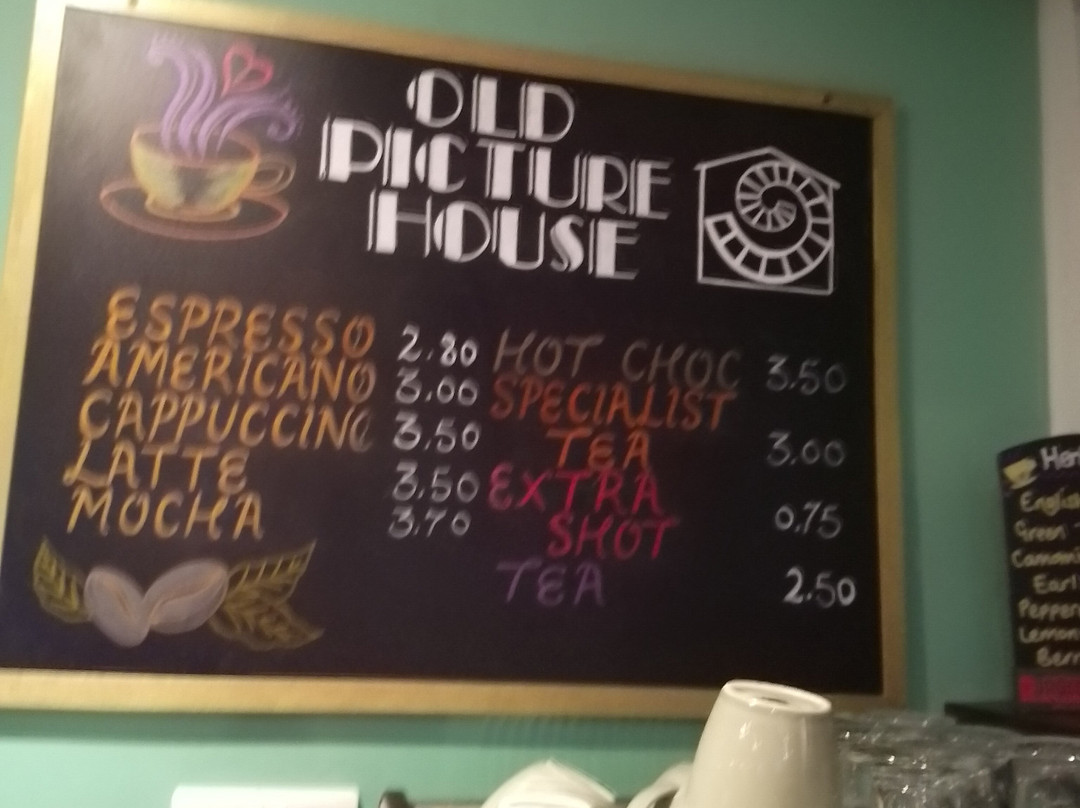 OLD
PICTURE
HOUSE
ESPRESSO 2.80
AMERICANO 3.00
CAPPUCCINO 3.50
LATTE 3.50
MOCHA 3.70
HOT CHOC 3.50
SPECIALIST
TEA 3.00
EXTRA
SHOT 0.75
TEA 2.50
Her
English
Green T
Camomi
Earl
Pepper
Lemon
Berr